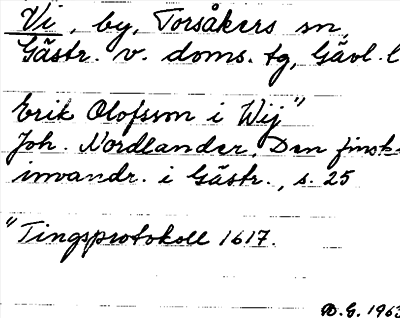 Vi, by, Torsåkers sn,
Gästr. v. doms. tg, Gävl. l
Erik Olofsson i Wij"
Joh. Nordlander, Den finsk
invandr. i Gästr., s. 25
"Tingsprotokoll 1617.
D.G. 1963